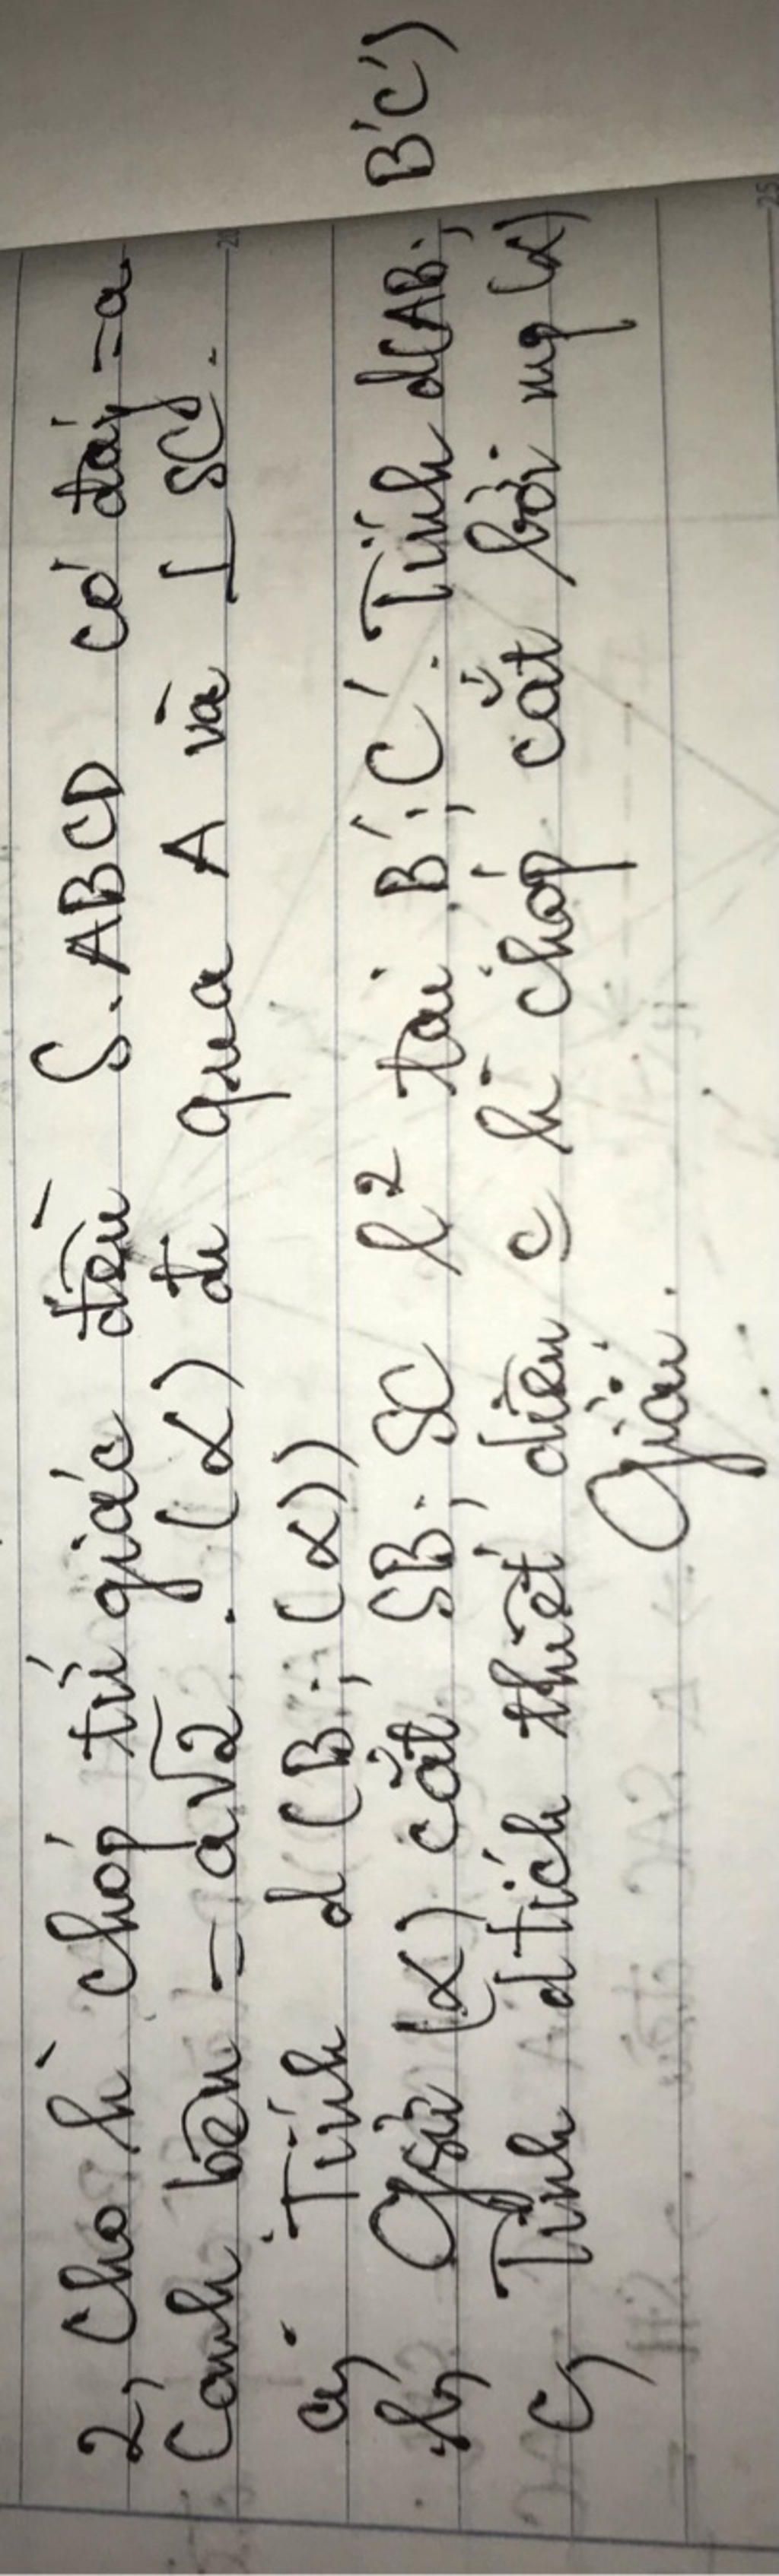 2, Cho h̀ chóp tứ giác đều S.ABCD có đáy = a
Cạnh bên = a√2. (α) đi qua A và ⊥ SC.
a, Tính d(B; (α))
b, Gsử (α) cắt SB; SC l² tại B'; C'. Tính d(AB; B'C')
c, Tính dtích thiết diện c h̀ chóp cắt bởi mp (α)
Giải.